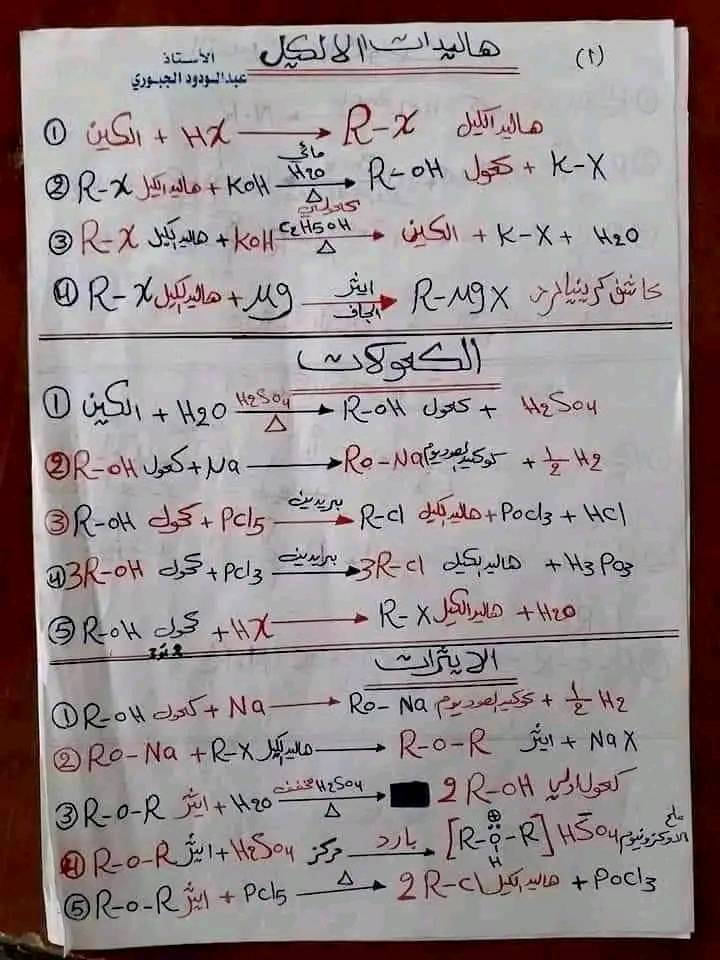 (٢) هاليدات الالكيل
الأستاذ
عبدالودود الجبوري
① الكين + HX → R-X هاليد الكيل
② R-X هاليد الكيل + KOH مائي H2O △ → R-OH كحول + K-X
③ R-X هاليد الكيل + KOH كحولي C2H5OH △ → الكين + K-X + H2O
④ R-X هاليد الكيل + Mg ايثر الجاف → R-MgX كاشف كرينيارد
الكحولات
① الكين + H2O H2SO4 △ → R-OH كحول + H2SO4
② R-OH كحول + Na → RO-Na الصوديوم + ½ H2
③ R-OH كحول + PCl5 بريدين → R-Cl هاليد الكيل + POCl3 + HCl
④ 3R-OH كحول + PCl3 بريدين → 3R-Cl هاليد الكيل + H3PO3
⑤ R-OH كحول + HX → R-X هاليد الكيل + H2O
الايثرات
① R-OH كحول + Na → RO-Na الصوديوم + ½ H2
② RO-Na + R-X هاليد الكيل → R-O-R ايثر + NaX
③ R-O-R ايثر + H2O مخفف H2SO4 △ → 2R-OH كحول اولي
④ R-O-R ايثر + H2SO4 مركز بارد → [R-O-R] HSO4 ملح الاوكزونيوم
⊕
H
⑤ R-O-R ايثر + PCl5 △ → 2R-Cl هاليد الكيل + POCl3